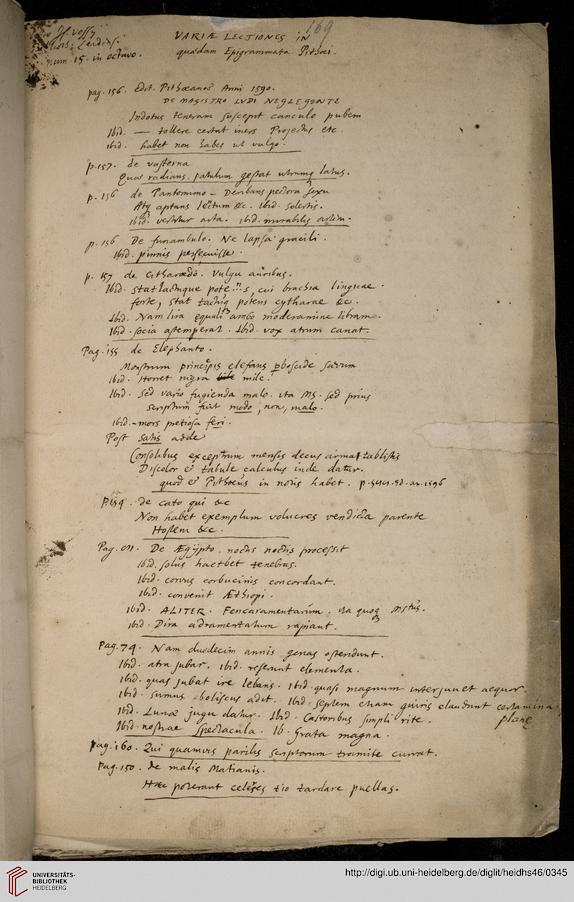 169
VARIÆ LECTIONES IN
quædam Epigrammata Pithoei.
num 15. in octavo.
pag. 156. Edit. Pithœanæ Anni 1590.
DE MAGISTRO LVDI NEGLEGENTE
Indotus teneram suscepit canculo pubem
Ibid. — tollere certat iners Projectus etc
ibid. habet non habes ut vulgo.
p.157. de vasterna
Quas radians patulum gestat utrumq latus.
p. 156 de Pantomimo – Deribans pectora sexu
Atq aptans lectum &c. Ibid. solertis.
ibid. vestitur arta. ibid. mirabilis artem.
p. 156 De funambulo. Ne lapsa gracili.
Ibid. pinnis
p. 157 de Citharœdo. Vulgu auribus.
Ibid. cui brachia linguae.
forte, stat potens cytharae &c.
Ibid. Nam lira equali ambo moderamine librans.
Ibid. socia astemperat. Ibid. vox atrum canat.
Pag. 155 de Elephanto.
Monstrum principis elefans pboscide saevum
Ibid. Horret nigra mile.
Ibid. Sed vario fugienda malo. ita MS. sed prius
scriptum fuit modo, non, malo.
ibid. – mors pretiosa feri.
Post satis adde
Consolibus exceptum menses decus armat tablistis
Discolor et tabule calculus inde datur.
quod et Pithoeus in notis habet. ed. an. 1596
p.159. de cato qui &c
Non habet exemplum volucres vendicta parente
Hostem &c.
Pag. De Ægypto. noctis processit
ibid. solus hactbet tenebus.
ibid. corvus corbucinis concordant.
ibid. convenit Æthiopi.
ibid. ALITER. Fencaramentarium. ita quoq
ibid. Dira adramentarum rapiant.
Pag. 74. Nam duodecim annis genas ostendunt.
Ibid. atra jubar. ibid. reserunt elementa.
Ibid. quas jubat ire lebans. Ibid. quasi magnum interjuuet aequor.
Ibid. sumus oboliscus adet. Ibid. septem etiam gyris claudunt certamina
Ibid. Lunae jugu datur. Ibid. Castoribus simpli rite. plane
Ibid. nostrae spectacula. Ib. grata magna.
pag. 160. Qui quamvis pariles scriptorum tramite currat.
Pag. 150. de malis Matianis.
Hæc poterant celeres tio tardare puellas.
UNIVERSITÄTS-
BIBLIOTHEK
HEIDELBERG
http://digi.ub.uni-heidelberg.de/diglit/heidhs46/0345